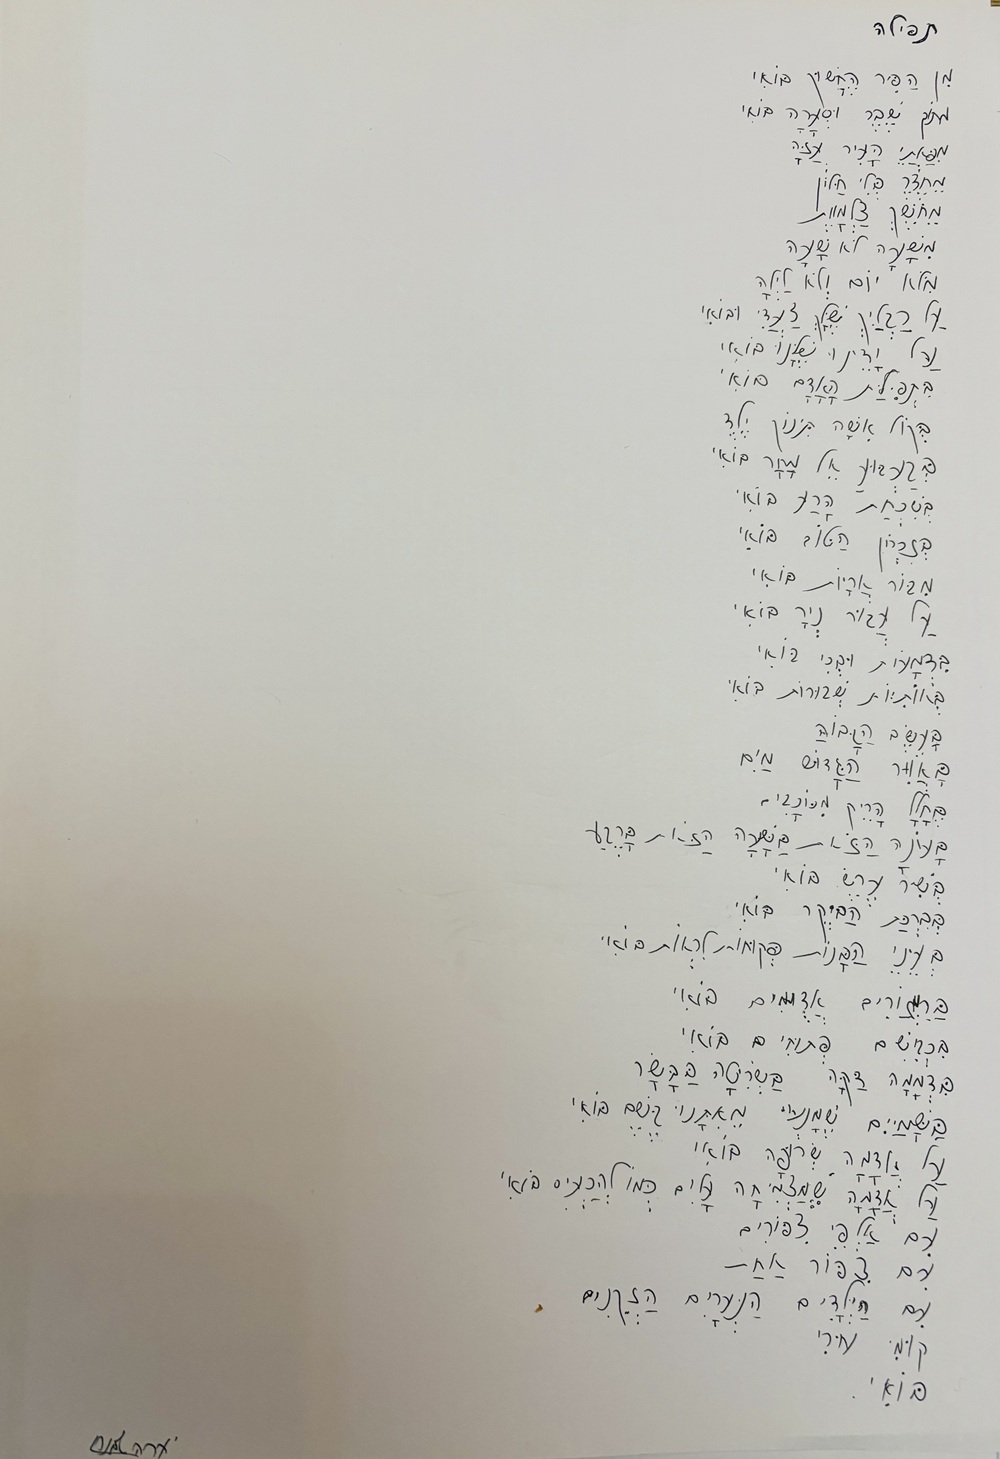 תפילה
מִן הַפִּיר הֶחָשׁוּךְ בּוֹאִי
מתּוֹךְ שֶׁבֶר וּסְעָרָה בּוֹאִי
מִפַּאֲתֵי הָעִיר עַזָּה
מֵחֶדֶר בְּלִי חַלּוֹן
מֵחֹשֶׁךְ צַלְמָוֶת
מִשָּׁעָה לֹא שָׁעָה
מִלֹּא יוֹם וְלֹא לַיְלָה
עַל רַגְלַיִךְ שֶׁלָּךְ צַעֲדִי וּבוֹאִי
עַל יָדֵינוּ שֶׁלָּנוּ בּוֹאִי
בִּתְפִלַּת הָאָדָם בּוֹאִי
בְּקוֹל אִשָּׁה תִּינוֹק יֶלֶד
בְּגַעְגּוּעַ אֶל מָדָר בּוֹאִי
בְּשִׁכְחַת הָרַע בּוֹאִי
בְּזִכְרוֹן הַטּוֹב בּוֹאִי
מִבּוֹר אֲרָיוֹת בּוֹאִי
עַל עֲבוּר נְיָר בּוֹאִי
בִּדְמָעוֹת וּבְכִי בּוֹאִי
בְּאוֹתִיּוֹת שְׁבוּרוֹת בּוֹאִי
בָּעֵשֶׂב הַגָּבוֹהַּ
בָּאֲוִיר הַגָּדוּשׁ מַיִם
בֶּחָלָל הָרֵיק מִכּוֹכָבִים
בָּעוֹנָה הַזֹּאת בַּשָּׁעָה הַזֹּאת בָּרֶגַע
בְּשִׁיר עֶרֶשׂ בּוֹאִי
בְּבִרְכַּת הַבֹּקֶר בּוֹאִי
בְּעֵינֵי הַבָּנוֹת פְּקוּחוֹת לִרְאוֹת בּוֹאִי
בַּרַמְזוֹרִים אֲדֻמִּים בּוֹאִי
בִּכְבִישִׁים פְּתוּחִים בּוֹאִי
בִּדְמָמָה דַּקָּה בַּשְּׂרִיטָה בַּבָּשָׂר
בַּשָּׁמַיִם מֵאִתָּנוּ גֶּשֶׁם בּוֹאִי
עַל אֲדָמָה שְׂרוּפָה בּוֹאִי
עַל אֲדָמָה שֶׁמַּצְמִיחָה עָלִים כְּמוֹ לְהַכְעִיס בּוֹאִי
עִם אַלְפֵי צִפּוֹרִים
עִם צִפּוֹר אַחַת
עִם הַיְלָדִים הַנְּעָרִים הַזְּקֵנִים
קוּמִי עוּרִי
בּוֹאִי.